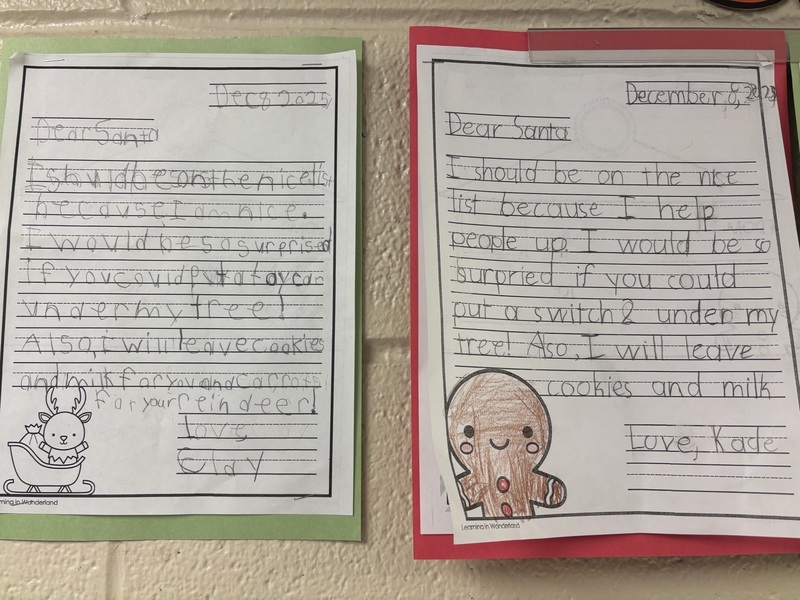 Dec 8 2025
Dear Santa
I should be on the nice list
because I am nice.
I would be so surprised
if you could put a toy can
under my tree!
Also, i will leave cookies
and milk for you and carrots
for your reindeer!
love
Clay
ming in Wonderland
December 8, 2025
Dear Santa
I should be on the nice
list because I help
people up I would be so
surpried if you could
put a switch 2 under my
tree! Aso, I will leave
cookies and milk
Love, Kade
Learning in Wonderland